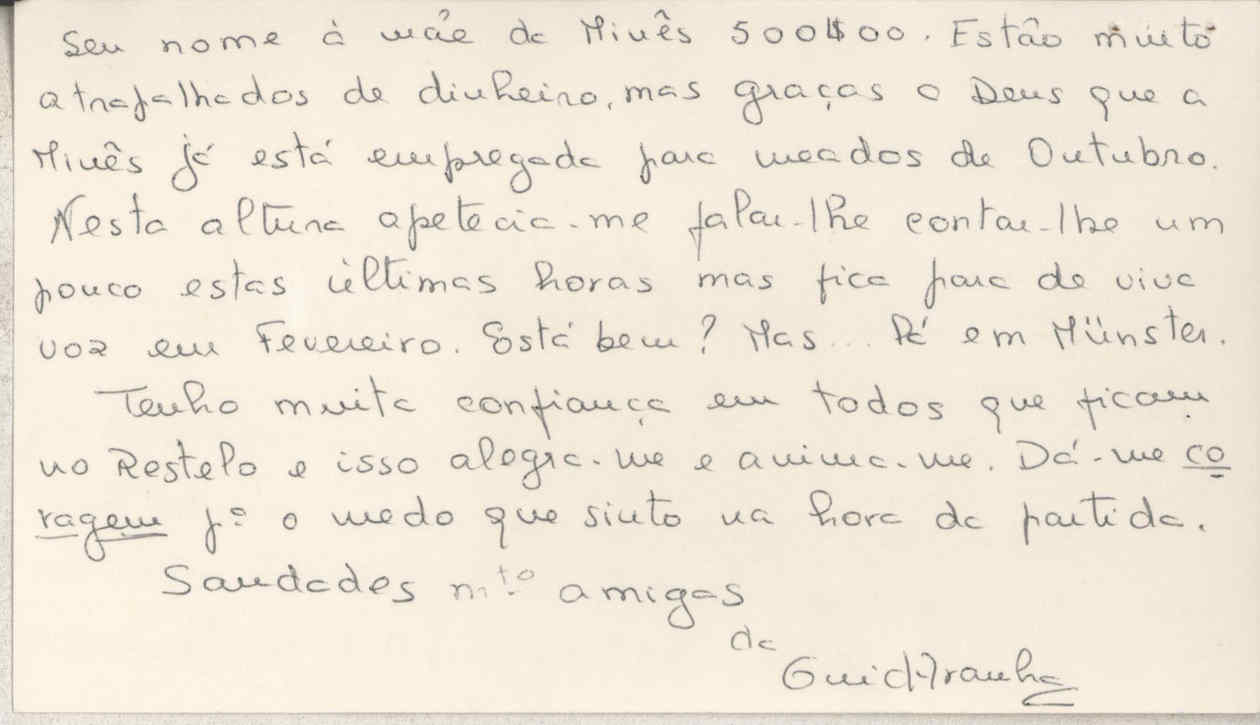 Seu nome à mãe da Minês 500$00. Estão muito
atrapalhados de dinheiro, mas graças a Deus que a
Minês já está empregada para meados de Outubro.
Nesta altura apetecia-me falar-lhe contar-lhe um
pouco estas últimas horas mas fica para de viva
voz em Fevereiro. Está bem? Mas... Lá em Münster.
Tenho muita confiança em todos que ficam
no Restelo e isso alegra-me e anima-me. Dá-me co
ragem pª o medo que sinto na hora da partida.
Saudades mto amigas
da
Guida Aranha